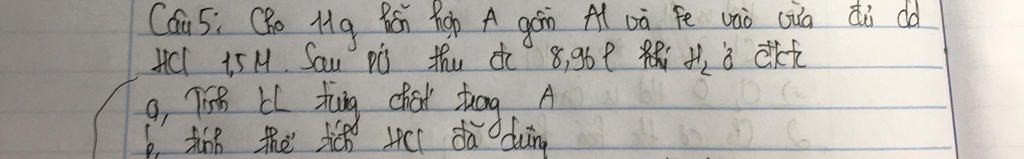 Câu 5: Cho 11g hỗn hợp A gồm Al và Fe vào vừa đủ dd
HCl 1,5M. Sau pứ thu đc 8,96 l khí H2 ở đktc
a, Tính kL từng chất trong A
b, tính thể tích HCl đã dùng